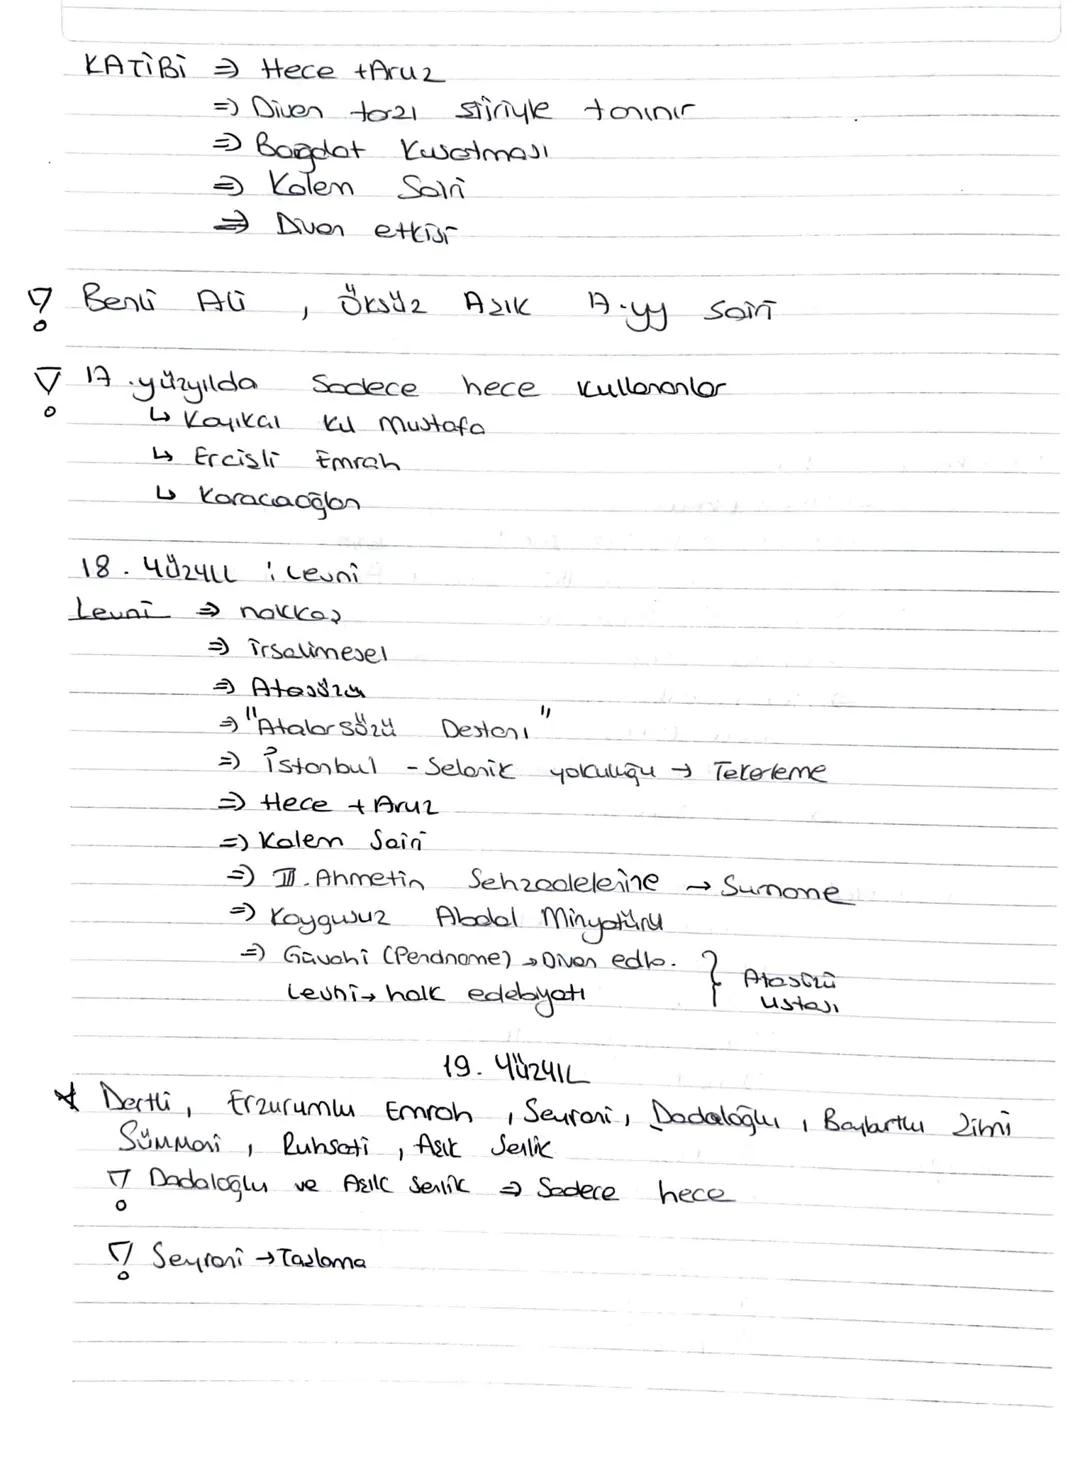 KATİBİ ⇒ Hece + Aruz
⇒ Divan tarzı şiiriyle tanınır
⇒ Bağdat Kuşatması
⇒ Kalem Şairi
⇒ Divan etkisi
! Benli Ali , Öksüz Aşık 17.yy şairi
! 17.yüzyılda Sadece hece kullananlar
↳ Kayıkçı Kul Mustafa
↳ Ercişli Emrah
↳ Karacaoğlan
18. YÜZYIL : Levni
Levni ⇒ nakkaş
⇒ irsalimesel
⇒ Atasözü
⇒ "Atalarsözü Destanı"
⇒ İstanbul - Selanik yolculuğu → Tekerleme
⇒ Hece + Aruz
⇒ Kalem Şairi
⇒ III. Ahmetin Şehzadelerine → Surname
⇒ Kaygusuz Abdal Minyatürü
⇒ Güvahi (Pendname) → Divan edb. } Atasözü
Levni → halk edebiyatı ustası
19. YÜZYIL
* Dertli, Erzurumlu Emrah , Seyrani, Dadaloğlu , Bayburtlu Zihni
Sümmani , Ruhsati , Aşık Şenlik
! Dadaloğlu ve Aşık Şenlik ⇒ Sadece hece
! Seyrani → Taşlama